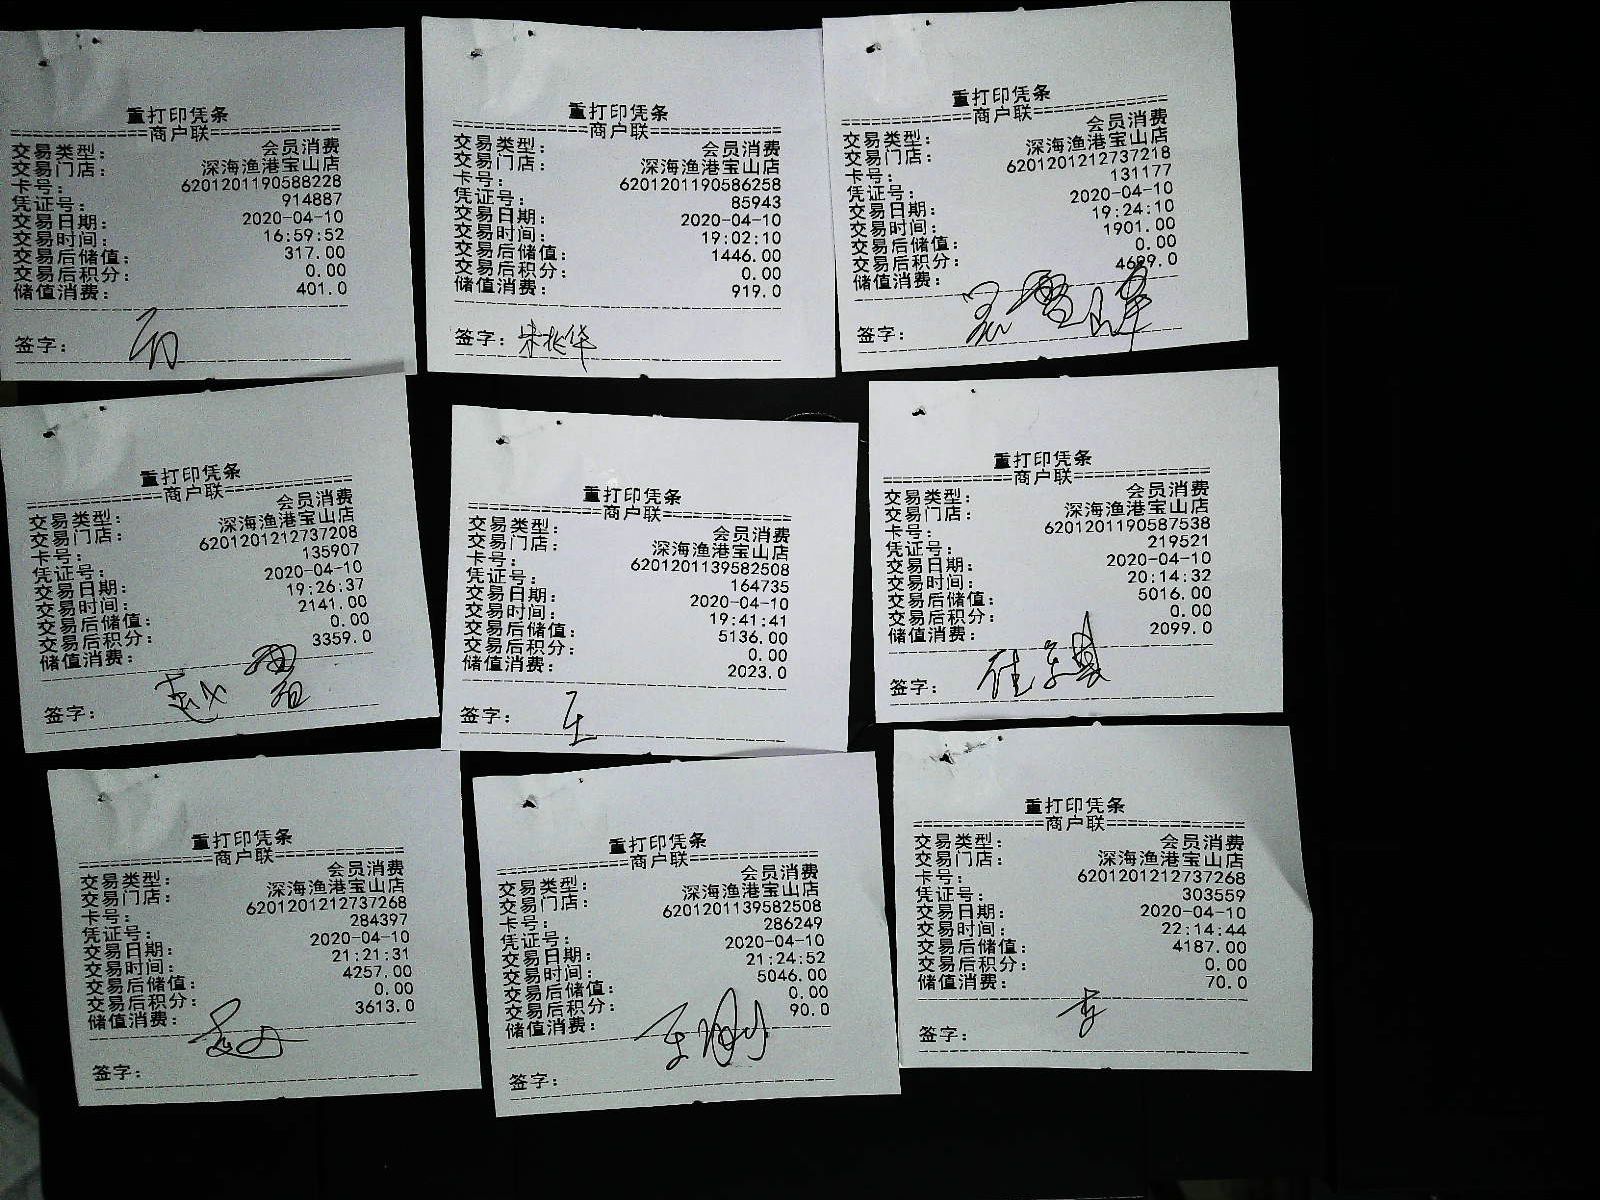 重打印凭条
================商户联================
交易类型: 会员消费
交易门店: 深海渔港宝山店
卡号: 6201201190588228
凭证号: 914887
交易日期: 2020-04-10
交易时间: 16:59:52
交易后储值: 317.00
交易后积分: 0.00
储值消费: 401.0
签字:
重打印凭条
================商户联================
交易类型: 会员消费
交易门店: 深海渔港宝山店
卡号: 6201201190586258
凭证号: 85943
交易日期: 2020-04-10
交易时间: 19:02:10
交易后储值: 1446.00
交易后积分: 0.00
储值消费: 919.0
签字: 宋兆华
重打印凭条
================商户联================
交易类型: 会员消费
交易门店: 深海渔港宝山店
卡号: 6201201212737218
凭证号: 131177
交易日期: 2020-04-10
交易时间: 19:24:10
交易后储值: 1901.00
交易后积分: 0.00
储值消费: 4699.0
签字:
重打印凭条
================商户联================
交易类型: 会员消费
交易门店: 深海渔港宝山店
卡号: 6201201212737208
凭证号: 135907
交易日期: 2020-04-10
交易时间: 19:26:37
交易后储值: 2141.00
交易后积分: 0.00
储值消费: 3359.0
签字:
重打印凭条
================商户联================
交易类型: 会员消费
交易门店: 深海渔港宝山店
卡号: 6201201139582508
凭证号: 164735
交易日期: 2020-04-10
交易时间: 19:41:41
交易后储值: 5136.00
交易后积分: 0.00
储值消费: 2023.0
签字: 王
重打印凭条
================商户联================
交易类型: 会员消费
交易门店: 深海渔港宝山店
卡号: 6201201190587538
凭证号: 219521
交易日期: 2020-04-10
交易时间: 20:14:32
交易后储值: 5016.00
交易后积分: 0.00
储值消费: 2099.0
签字:
重打印凭条
================商户联================
交易类型: 会员消费
交易门店: 深海渔港宝山店
卡号: 6201201212737268
凭证号: 284397
交易日期: 2020-04-10
交易时间: 21:21:31
交易后储值: 4257.00
交易后积分: 0.00
储值消费: 3613.0
签字:
重打印凭条
================商户联================
交易类型: 会员消费
交易门店: 深海渔港宝山店
卡号: 6201201139582508
凭证号: 286249
交易日期: 2020-04-10
交易时间: 21:24:52
交易后储值: 5046.00
交易后积分: 0.00
储值消费: 90.0
签字:
重打印凭条
================商户联================
交易类型: 会员消费
交易门店: 深海渔港宝山店
卡号: 6201201212737268
凭证号: 303559
交易日期: 2020-04-10
交易时间: 22:14:44
交易后储值: 4187.00
交易后积分: 0.00
储值消费: 70.0
签字: